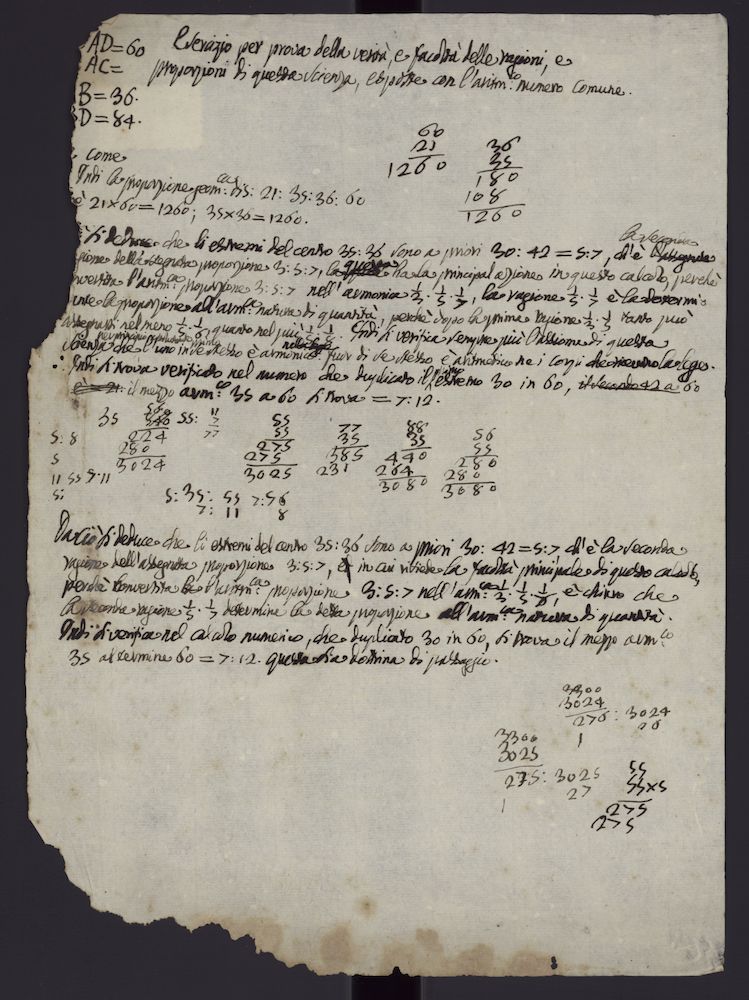 AD=60 Esercizio per prova della verità, e facoltà delle ragioni, e
AC= proporzioni di questa Scienza, esposte con l'aritm:co numero comune.
B=36.
D=84.
60
21
1260
36
35
180
108
1260
come
Indi la proporzione geom:ca dis: 21: 35: 36: 60
è 21×60=1260; 35×36=1260.
si deduce che li estremi del centro 35:36 sono a priori 30:42=5:7, ch'è la seconda
gione della segnata proporzione 3:5:7, la ha la principal azione in questo calcolo, perchè
convertita l'aritm:ca proporzione 3:5:7 nell'armonia 1/3. 1/5. 1/7, la ragione 1/5. 1/7 è la determi-
nante la proporzione all'aritm:ca natura di quantità, perchè dopo la prima ragione 1/3. 1/5 tanto può
assegnarsi nel meno 1/5. 1/7 quanto nel più. Indi si verifica sempre più l'assioma di questa
Scienza che l'uno in se stesso è armonico, fuor di se stesso è aritmetico
Indi si trova verificato nel numero che duplicato il primo estremo 30 in 60, il secondo 42 a 60
è = 21: il mezzo aritm:co 35 a 60 si trova = 7:12.
35 540 55: 11
5:8 224 77
5 280
3024
11 55 5:11
5:
55
55
275
275
3025
77
35
385
231
88
35
440
264
3080
56
55
280
280
3080
5: 35: 55 7:56
7: 11 8
Da ciò si deduce che li estremi del centro 35:36 sono a priori 30: 42=5:7, ch'è la seconda
ragione dell'assegnata proporzione 3:5:7, in cui risiede la facoltà principale di questo calcolo,
perchè convertita la l'aritm:ca proporzione 3:5:7 nell'arm:ca 1/3. 1/5. 1/7, è chiaro che
la seconda ragione 1/5. 1/7 determina la detta proporzione all'aritm:ca natura di quantità.
Indi si verifica nel calcolo numerico, che duplicato 30 in 60, si trova il mezzo aritm:co
35 al termine 60=7:12. questa sia dottrina di passaggio.
3300
3024
276: 3024
1
3300
3025
275: 3025
1 27
55
55×5
275
275